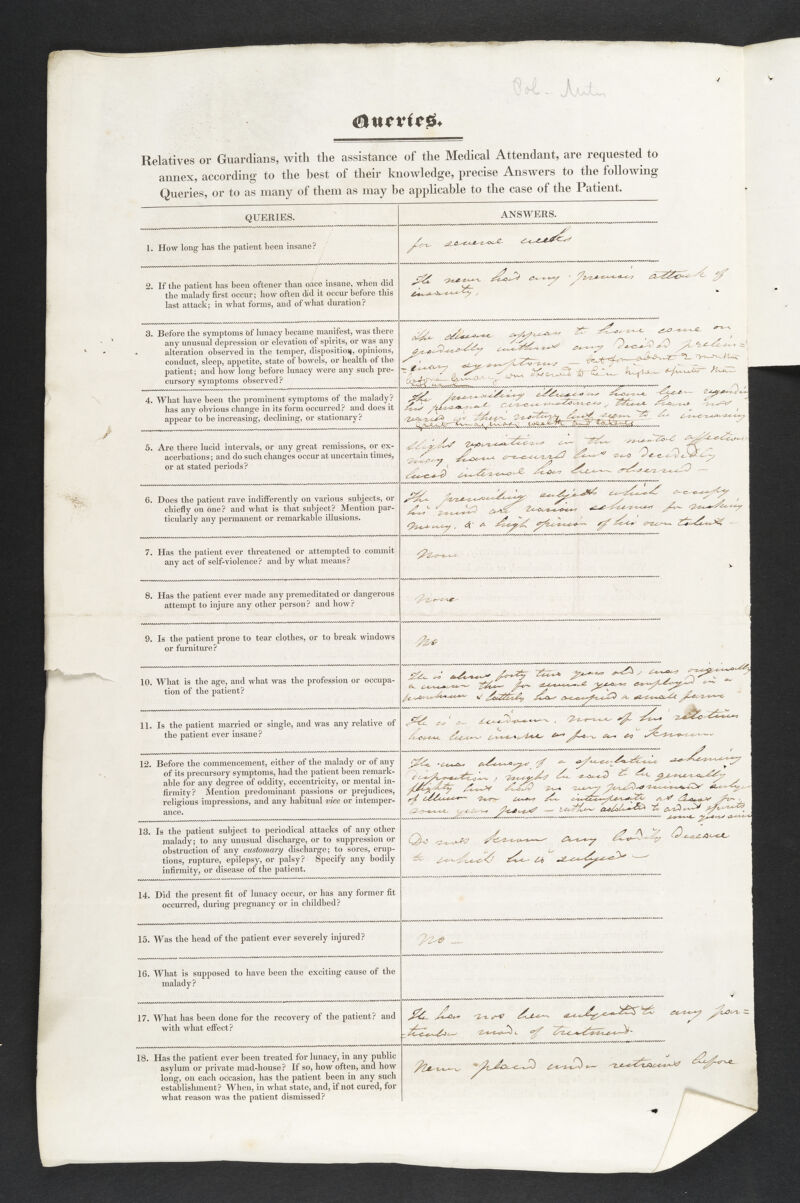 Queries.
Relatives or Guardians, with the assistance of the Medical Attendant, are requested to
annex, according to the best of their knowledge, precise Answers to the following
Queries, or to as many of them as may be applicable to the case of the Patient.
QUERIES.
ANSWERS.
1. How long has the patient been insane?
for several weeks
2. If the patient has been oftener than once insane, when did
the malady first occur; how often did it occur before this
last attack; in what forms, and of what duration?
He never had any previous attack of
insanity.
3. Before the symptoms of lunacy became manifest, was there
any unusual depression or elevation of spirits, or was any
alteration observed in the temper, disposition, opinions,
conduct, sleep, appetite, state of bowels, or health of the
patient; and how long before lunacy were any such pre-
cursory symptoms observed?
The disease appears to have come on
gradually without any decided prelim=
=inary symptoms — but for about 2 months
before lunacy was observed to be in higher spirits than
4. What have been the prominent symptoms of the malady?
has any obvious change in its form occurred? and does it
appear to be increasing, declining, or stationary?
The prevailing illusions have been regarding
his personal circumstances, these have not
varied in their nature but seem to be increasing
wealth and talents
5. Are there lucid intervals, or any great remissions, or ex-
acerbations; and do such changes occur at uncertain times,
or at stated periods?
Slight variations in the mental affection
may have occurred but no decidedly
lucid interval has been observed —
6. Does the patient rave indifferently on various subjects, or
chiefly on one? and what is that subject? Mention par-
ticularly any permanent or remarkable illusions.
The prevailing subjects which occupy
his mind are various schemes for making
money, & a high opinion of his own talent —
7. Has the patient ever threatened or attempted to commit
any act of self-violence? and by what means?
None
8. Has the patient ever made any premeditated or dangerous
attempt to injure any other person? and how?
None
9. Is the patient prone to tear clothes, or to break windows
or furniture?
No
10. What is the age, and what was the profession or occupa-
tion of the patient?
He is about forty two years old, was originally
a weaver then for several years employed in a
warehouse & latterly has occupied a small farm
11. Is the patient married or single, and was any relative of
the patient ever insane?
He is a widower. none of his relatives
have been insane as far as is known
12. Before the commencement, either of the malady or of any
of its precursory symptoms, had the patient been remark-
able for any degree of oddity, eccentricity, or mental in-
firmity? Mention predominant passions or prejudices,
religious impressions, and any habitual vice or intemper-
ance.
He was always of a speculative scheming
disposition, might be said to be generally
flighty but had no very predominant
of illusion nor was he intemperate at least for
some years past — rather addicted to ardent spirits
some years since
13. Is the patient subject to periodical attacks of any other
malady; to any unusual discharge, or to suppression or
obstruction of any customary discharge; to sores, erup-
tions, rupture, epilepsy, or palsy? Specify any bodily
infirmity, or disease of the patient.
Do not know any bodily disease
to which he is subject —
14. Did the present fit of lunacy occur, or has any former fit
occurred, during pregnancy or in childbed?
15. Was the head of the patient ever severely injured?
No —
16. What is supposed to have been the exciting cause of the
malady?
17. What has been done for the recovery of the patient? and
with what effect?
He has not been subjected to any par=
=ticular mode of treatment.
18. Has the patient ever been treated for lunacy, in any public
asylum or private mad-house? If so, how often, and how
long, on each occasion, has the patient been in any such
establishment? When, in what state, and, if not cured, for
what reason was the patient dismissed?
Never placed under restraint before